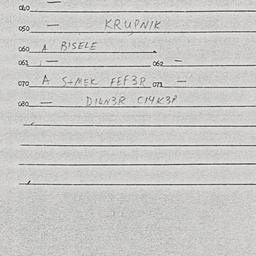 040 —
050 — KRUPNIK
060 A BISELE
061 — 062 —
070 A STMEK FEF3R 071 —
080 — DILN3R CI4K3P